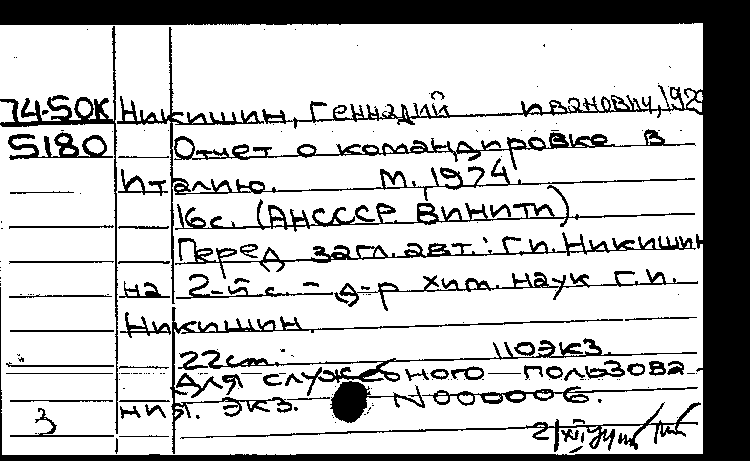 74-50К Никишин, Геннадий Иванович, 192
5180 Отчет о командировке в
Италию. М., 1974.
16с. (АНСССР. ВИНИТИ).
Перед загл. авт.: Г.И. Никишин
на 2-й с. - д-р хим. наук Г.И.
Никишин.
22см. 110экз.
Для служебного пользова-
ния. Экз. N000006.
3